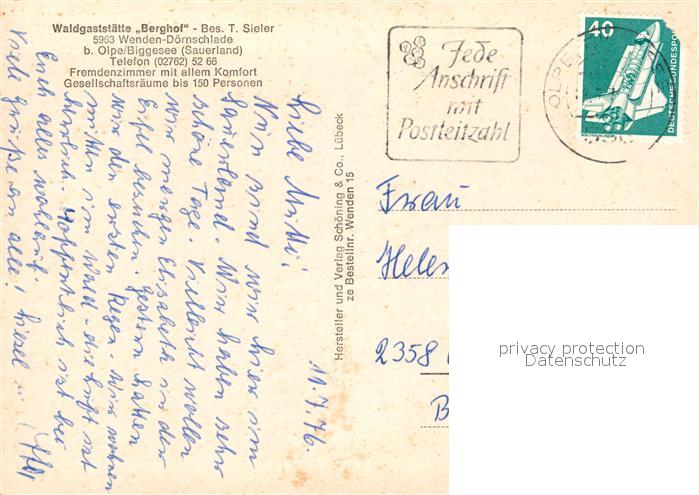 Waldgaststätte „Berghof" - Bes. T. Sieler
5963 Wenden-Dörnschlade
b. Olpe/Biggesee (Sauerland)
Telefon (02762) 52 66
Fremdenzimmer mit allem Komfort
Gesellschaftsräume bis 150 Personen
Jede
Anschrift
mit
Postleitzahl
OLPE
40
DEUTSCHE BUNDESPOST
11.7.76.
Liebe Mutti!
Nun sind wir hier im
Sauerland. Wir haben sehr
schöne Tage. Vielleicht wollen
wir morgen Elisabeth in der
Eifel besuchen. Gestern hatten
wir den ersten Regen. Wir wohnen
mitten im Wald - die Luft ist
herrlich. Hoffentlich ist bei
Euch alles wohlauf.
Viele Grüße an alle!
Hersteller und Verlag Schöning & Co., Lübeck
ze Bestellnr. Wenden 15
Frau
Helen
2358
B
privacy protection
Datenschutz